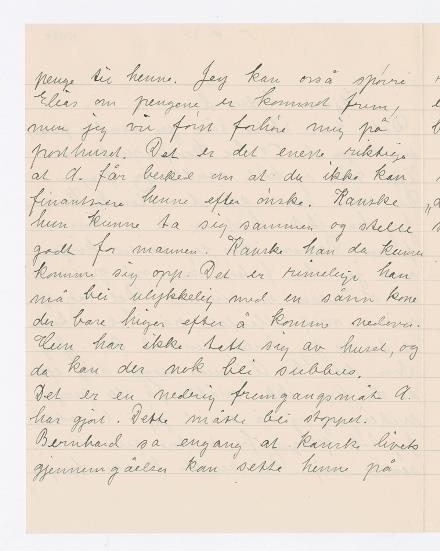 penge til henne. Jeg kan også spørre
Elias om pengene er kommet frem,
men jeg vil först forhöre mig på
posthuset. Det er det eneste riktige
at A. får beskjed om at du ikke kan
finansiere henne efter ønske. Kanske
hun kunne ta sig sammen og stelle
godt for mannen. Kanske han da kunne
komme sig opp. Det er rimelig han
må bli ulykkelig med en sånn kone
der bare higer efter å komme nedover.
Hun har ikke tatt sig av huset, og
da kan der nok bli subbus.
Det er en nedrig fremgangsmåte A.
har gjort. Dette måtte bli stoppet.
Bernhard sa engang at kanske livets
gjennemgåelser kan sette henne på